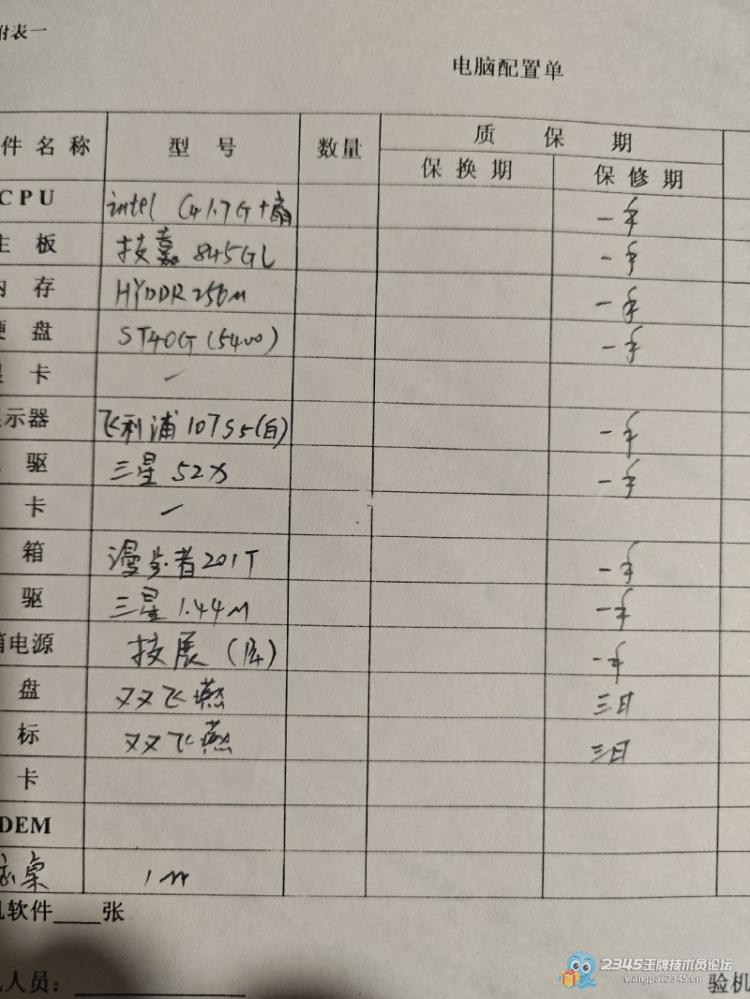 附表一
电脑配置单
件名称 型号 数量 质保期
保换期 保修期
CPU intel C4 1.7G+扇 一年
主板 技嘉 845GL 一年
内存 HYDDR 256M 一年
硬盘 ST40G(5400) 一年
显卡 —
示器 飞利浦 107S5(白) 一年
驱 三星 52X 一年
卡 —
箱 漫步者 201T 一年
驱 三星 1.44M 一年
箱电源 技展 一年
盘 双飞燕 三月
标 双飞燕 三月
卡
DEM
桌 1m
机软件____张
人员: 验机
2345王牌技术员论坛
wangpai2345.cn